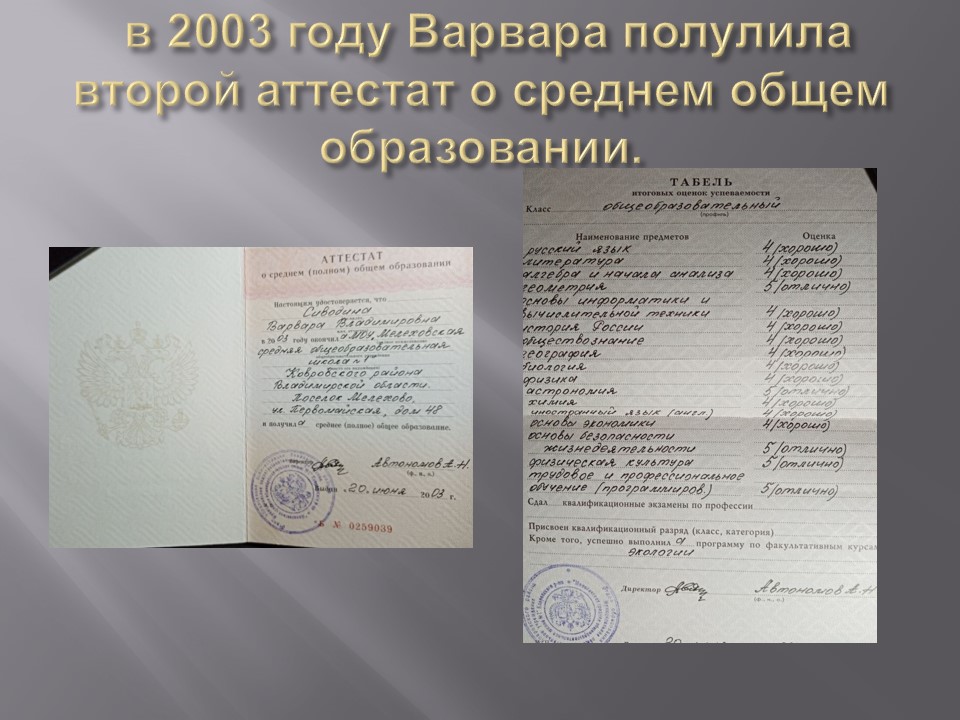 в 2003 году Варвара полулила
второй аттестат о среднем общем
образовании.
АТТЕСТАТ
о среднем (полном) общем образовании
Настоящим удостоверяется, что
Сиводина
Варвара Владимировна
в 2003 году окончила МОУ Мелеховская
средняя общеобразовательная
школа №1
Ковровского района
Владимирской области.
Поселок Мелехово,
ул. Первомайская, дом 48
и получила среднее (полное) общее образование.
Автономов А.Н.
(ф., и., о.)
Выдан 20 июня 2003 г.
Б № 0259039
ТАБЕЛЬ
итоговых оценок успеваемости
Класс общеобразовательный
(профиль)
Наименование предметов Оценка
русский язык 4 (хорошо)
литература 4 (хорошо)
алгебра и начала анализа 4 (хорошо)
геометрия 5 (отлично)
основы информатики и
вычислительной техники 4 (хорошо)
история России 4 (хорошо)
обществознание 4 (хорошо)
география 4 (хорошо)
биология 4 (хорошо)
физика 4 (хорошо)
астрономия 5 (отлично)
химия 4 (хорошо)
иностранный язык (англ.) 4 (хорошо)
основы экономики 4 (хорошо)
основы безопасности
жизнедеятельности 5 (отлично)
физическая культура 5 (отлично)
трудовое и профессиональное
обучение (программиров.) 5 (отлично)
Сдал квалификационные экзамены по профессии
Присвоен квалификационный разряд (класс, категория)
Кроме того, успешно выполнила программу по факультативным курсам
экологии
Директор Автономов А.Н
(ф., и., о.)